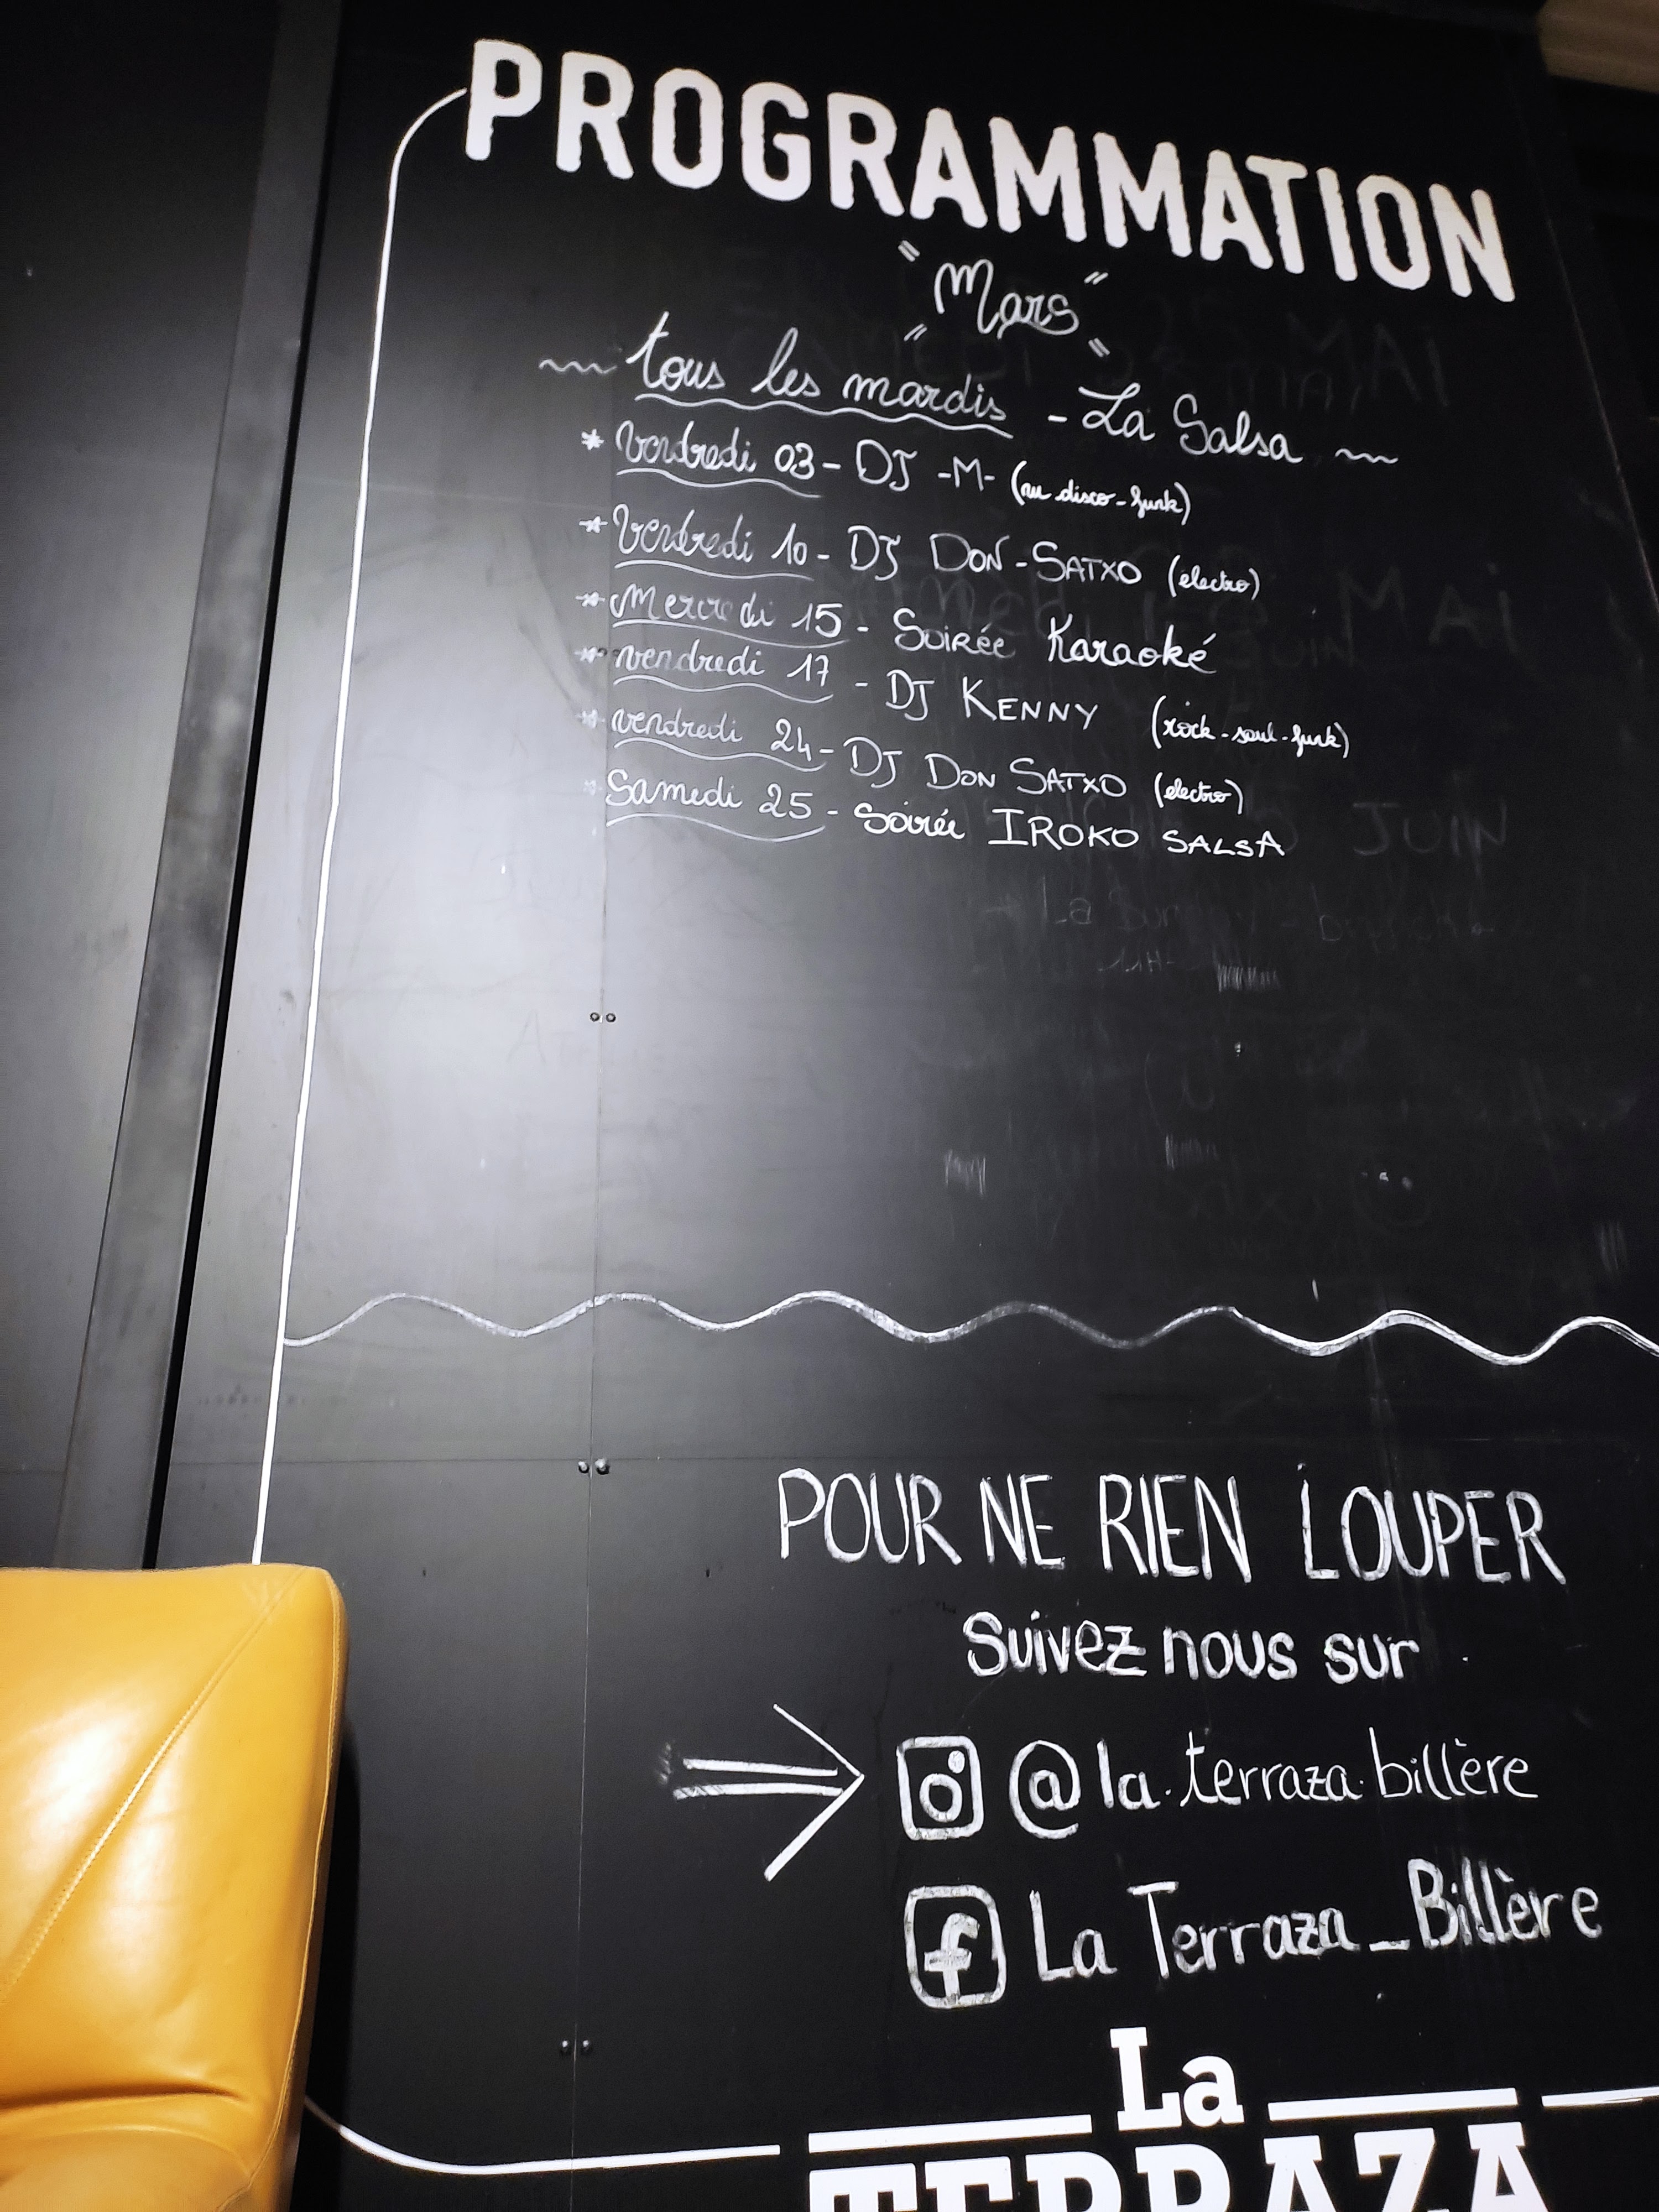 PROGRAMMATION
"Mars"
tous les mardis - La Salsa
* Vendredi 03 - DJ -M- (nu disco-funk)
* Vendredi 10 - DJ DON-SATXO (electro)
* Mercredi 15 - Soirée Karaoké
* vendredi 17 - DJ KENNY (rock-soul-funk)
* vendredi 24 - DJ DON SATXO (electro)
* Samedi 25 - Soirée IROKO SALSA
POUR NE RIEN LOUPER
Suivez nous sur
@la.terraza.billère
La Terraza_Billère
La
TERRAZA